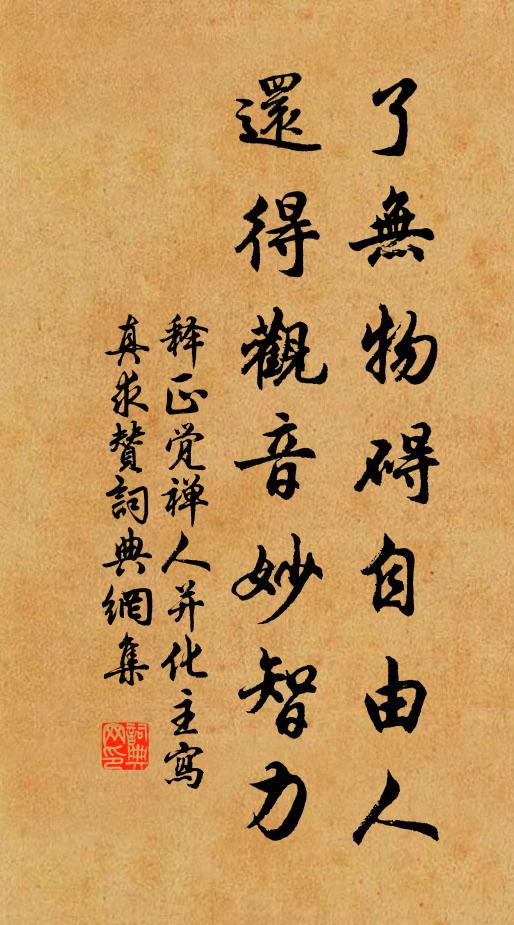 了無物碍自由人
還得觀音妙智力
释正觉禅人并化主寫
真求贊詞典網集
詞典
网印